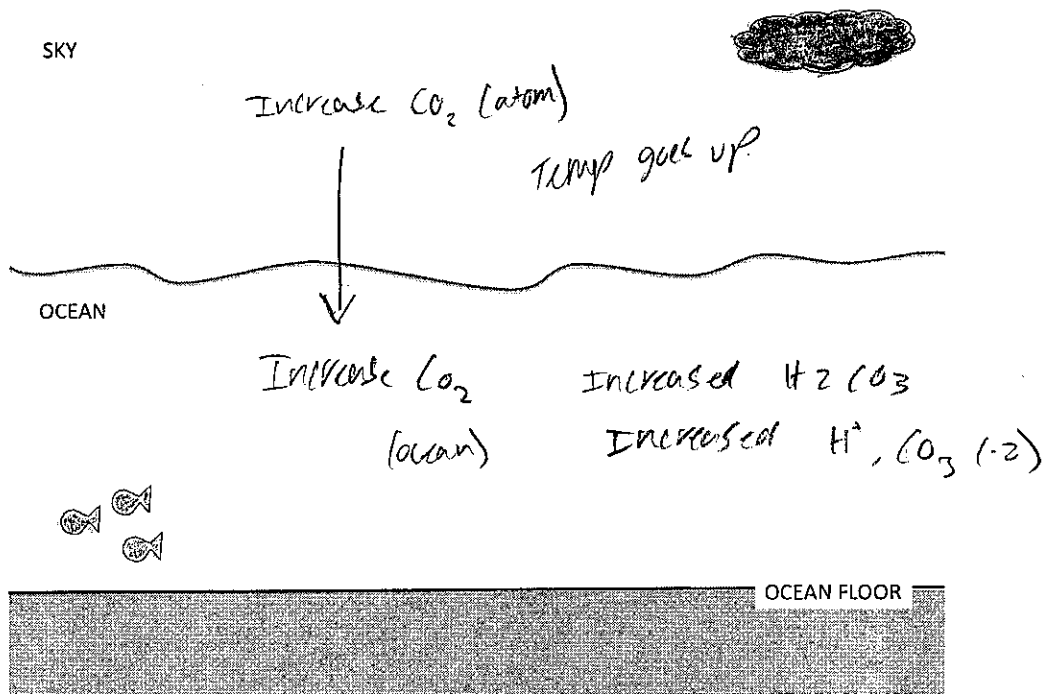 SKY
Increase CO₂ (atom)
Temp goes up.
OCEAN
Increase CO₂
(ocean)
Increased H2CO3
Increased H⁺, CO₃ (-2)
OCEAN FLOOR